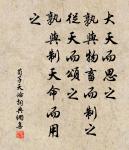 大天而思之
孰與物畜而制之
從天而頌之
孰與制天命而用
之
荀子天論詞典網集